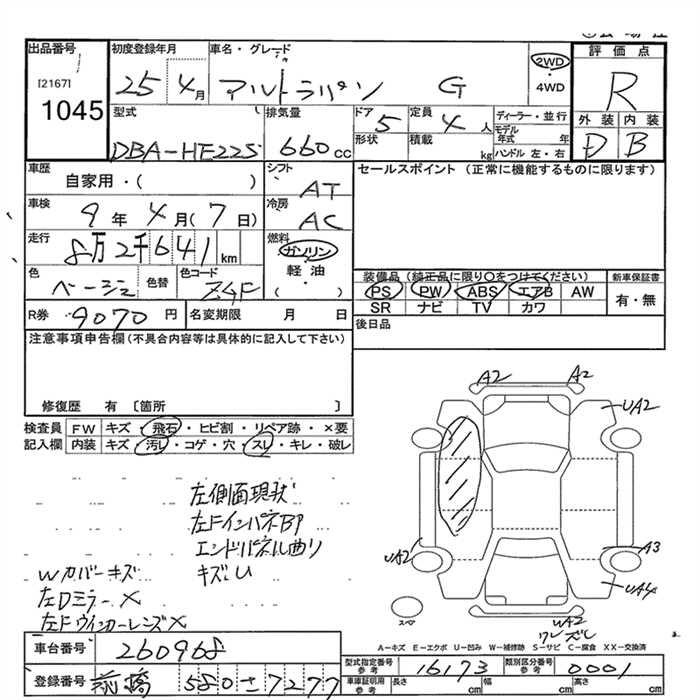 出品番号
[2167]
1045
初度登録年月
25 4月
車名・グレード
アルトラパン G
2WD
・
4WD
評価点
R
外装 内装
D B
型式
DBA-HE22S
排気量
660cc
ドア
形状
5
定員
4人
積載
kg
ディーラー・並行
モデル
年式 年
ハンドル 左・右
車歴
自家用・( )
シフト
AT
セールスポイント (正常に機能するものに限ります)
車検
9年 4月(7日)
冷房
AC
走行
8万2千641km
燃料
ガソリン
・
軽油
・
( )
色
ベージュ
色替
色コード
Z4F
装備品(純正品に限り○をつけてください)
PS PW ABS エアB AW
SR ナビ TV カワ
新車保証書
有・無
R券 9070円
名変期限 月 日
後日品
注意事項申告欄(不具合内容等は具体的に記入して下さい)
修復歴 有〔箇所 〕
検査員
記入欄
FW キズ・飛石・ヒビ割・リペア跡・×要
内装 キズ・汚レ・コゲ・穴・スレ・キレ・破レ
左側面現状
左FインパネBP
エンドパネル曲り
キズU
Wカバーキズ
左Dミラー×
左FウインカーレンズX
A2
A2
UA2
UA2
A3
UA4
UA2
ワレズレ
スペア
A−キズ E−エクボ U−凹み W−補修跡 S−サビ C−腐食 XX−交換済
車台番号 260968
登録番号 前橋 580 土 7277
型式指定番号
参考
16173
類別区分番号
参考
0001
車庫証明用
参考
長さ cm
幅 cm
高さ cm